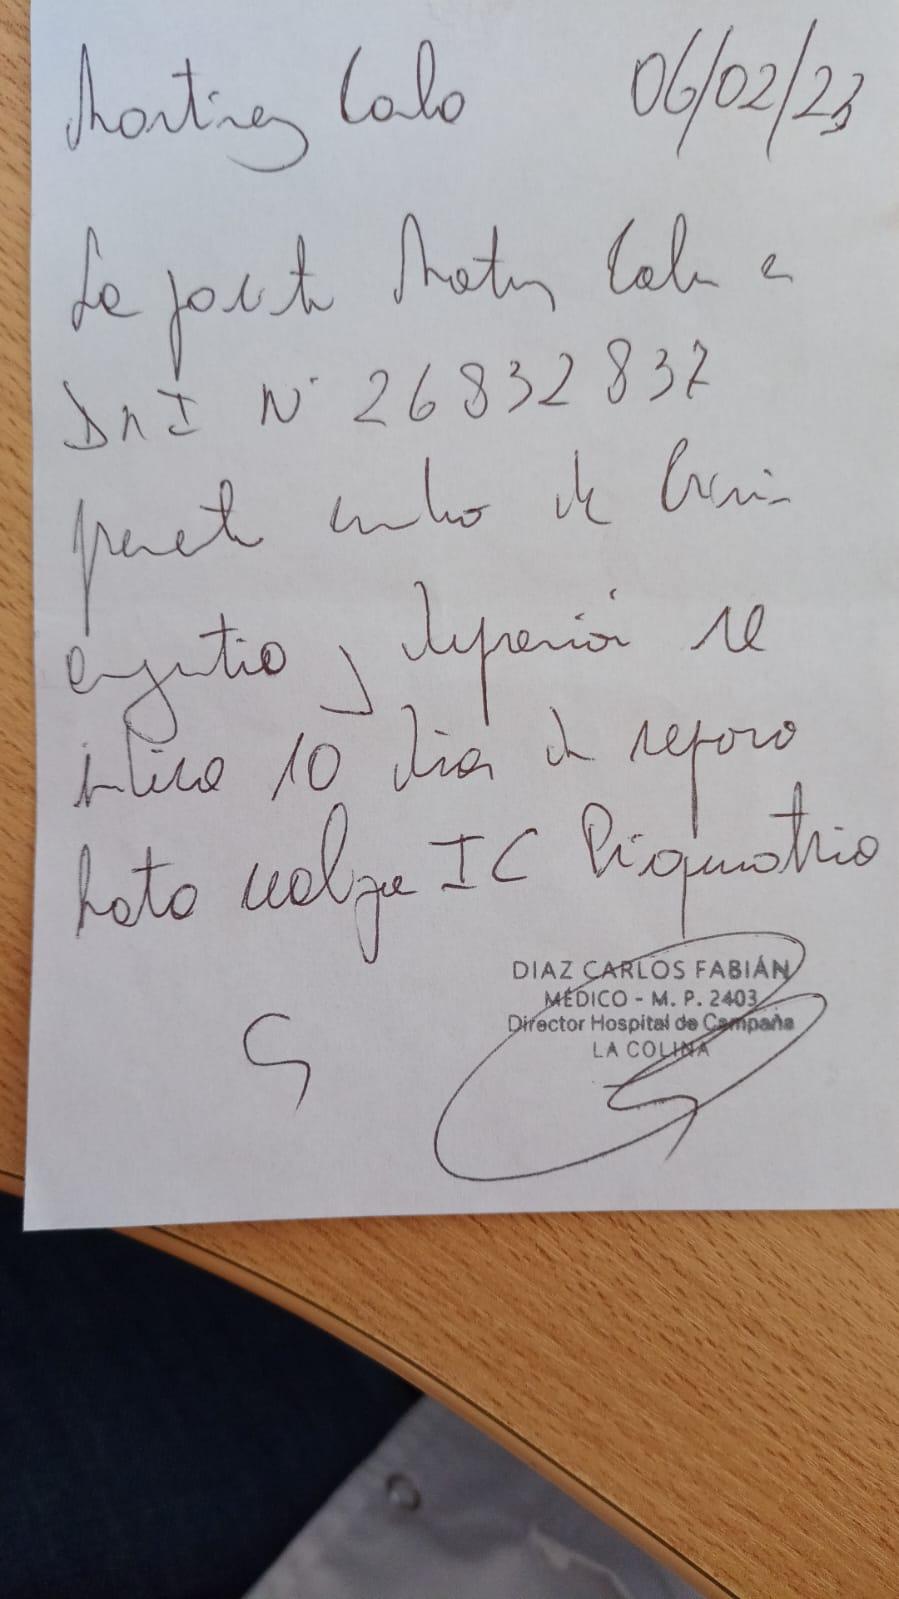 Martinez Carla 06/02/23
La paciente Martinez Carla
DNI Nº 26832837
presenta cuadro de Crisis
angustia y depresión se
indica 10 dias de reposo
hasta realizar IC Psiquiatria
DIAZ CARLOS FABIÁN
MÉDICO - M. P. 2403
Director Hospital de Campaña
LA COLINA